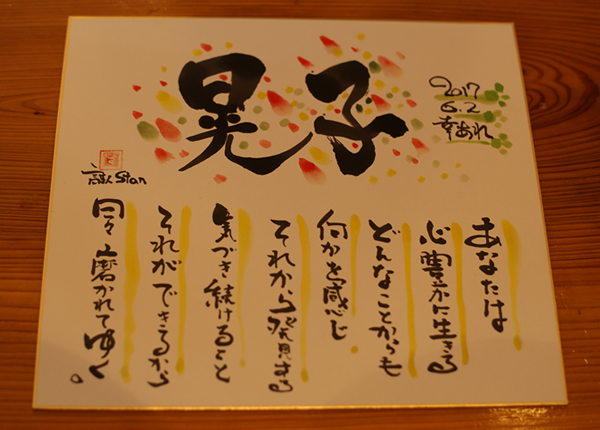 晃子
2017
6.2
幸あれ
あなたは
心豊かに生きる
どんなことからも
何かを感じ
それから発見する
気づき続けること
それができるから
日々磨かれてゆく。
Stan